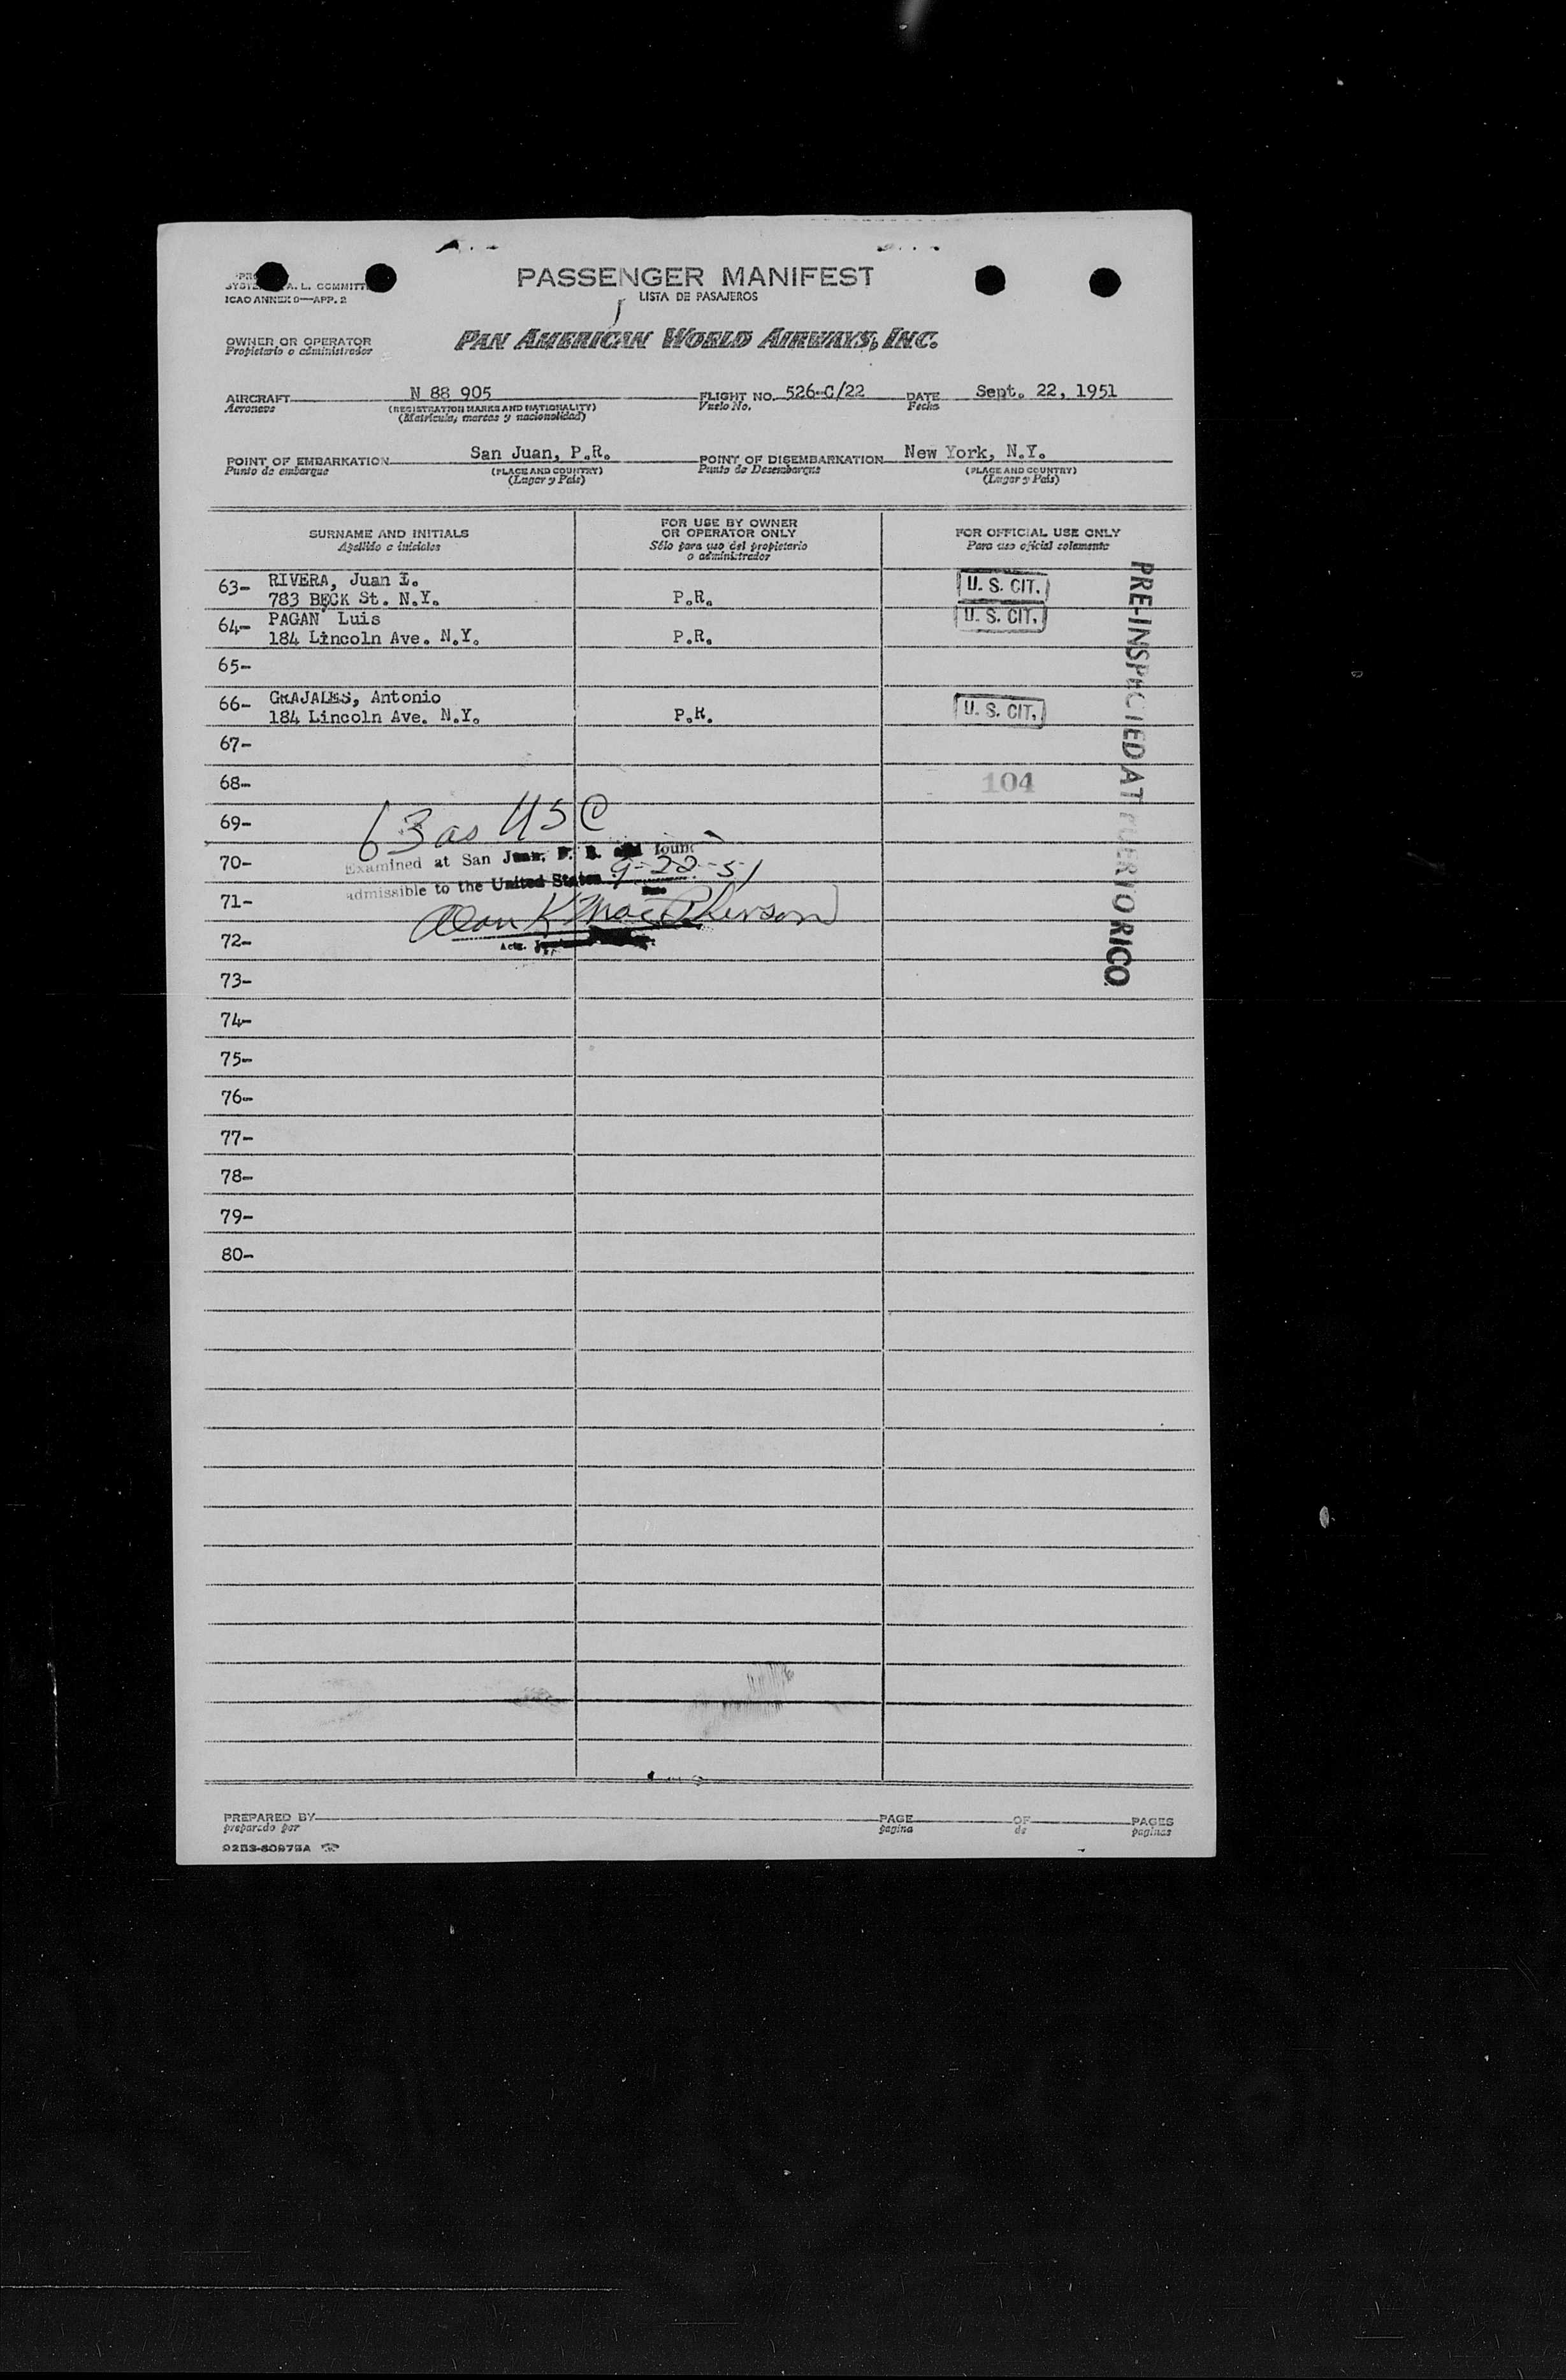 PASSENGER MANIFEST
LISTA DE PASAJEROS
A. L. COMMITT
ICAO ANNEX 9—APP. 2
OWNER OR OPERATOR
Propietario o administrador
PAN AMERICAN WORLD AIRWAYS, INC.
AIRCRAFT N 88 905 FLIGHT NO. 526-C/22 DATE Sept. 22, 1951
Aeronave (REGISTRATION MARKS AND NATIONALITY) Vuelo No. Fecha
(Matricula, marcas y nacionalidad)
POINT OF EMBARKATION San Juan, P.R. POINT OF DISEMBARKATION New York, N.Y.
Punto de embarque (PLACE AND COUNTRY) Punto de Desembarque (PLACE AND COUNTRY)
(Lugar y País) (Lugar y País)
SURNAME AND INITIALS
Apellido e iniciales
FOR USE BY OWNER
OR OPERATOR ONLY
Sólo para uso del propietario
o administrador
FOR OFFICIAL USE ONLY
Para uso oficial solamente
63- RIVERA, Juan I. U. S. CIT.
783 BECK St. N.Y. P.R.
64- PAGAN Luis U. S. CIT.
184 Lincoln Ave. N.Y. P.R.
65-
66- GRAJALES, Antonio U. S. CIT.
184 Lincoln Ave. N.Y. P.R.
67-
68- 104
69- 63 as USC
70- Examined at San Juan, P. R. and found
admissible to the United States 9-22-51
Date
71- Alan K MacPherson
72- Actg.
73-
74-
75-
76-
77-
78-
79-
80-
PRE-INSPECTED AT PUERTO RICO
PREPARED BY PAGE OF PAGES
preparado por pagina de paginas